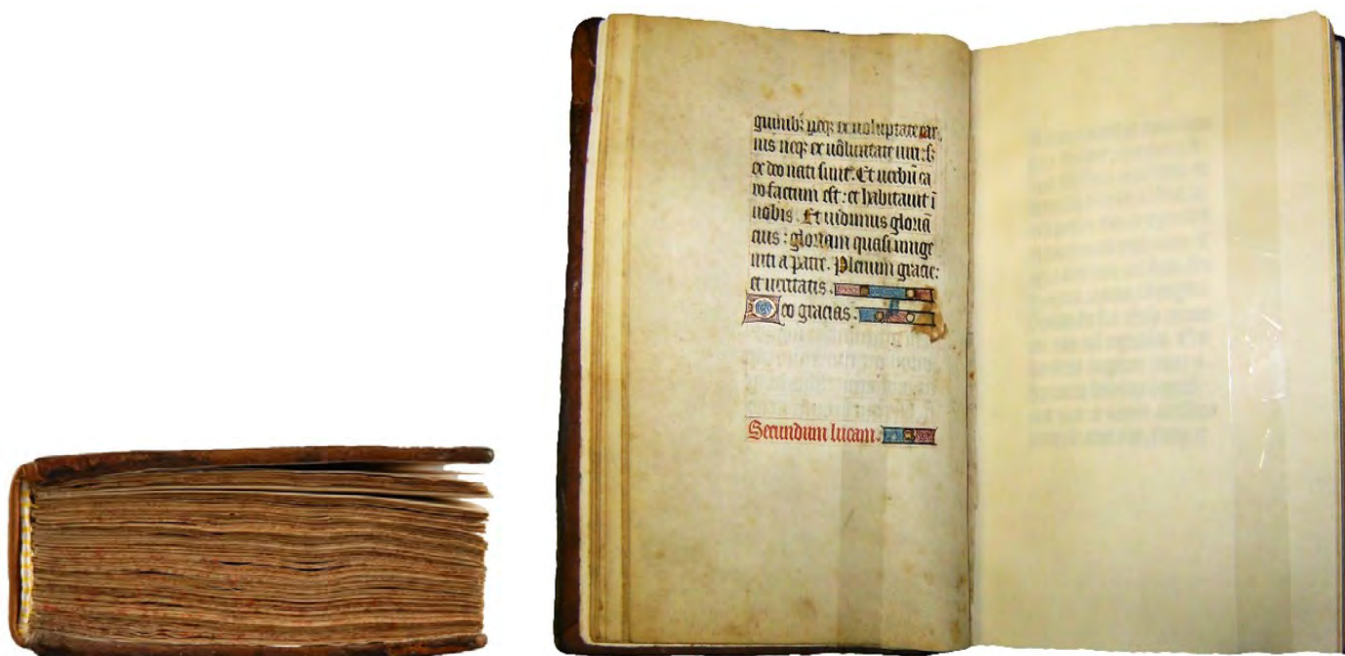 guinibꝫ neqꝫ ex uoluptate car
nis neqꝫ ex uoluntate uiri: sꝫ
ex deo nati sunt. Et uerbū ca
ro factum est: et habitauit ī
nobis. Et uidimus gloriā
eius: gloriam quasi unige
niti a patre. Plenum gracie:
et ueritatis.
Deo gracias.
Secundum lucam.